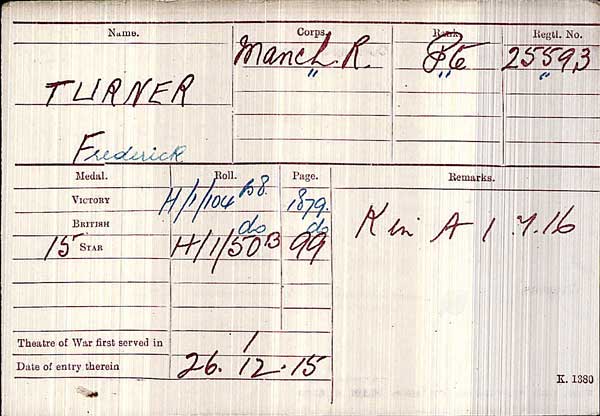 Name. Corps. Rank. Regtl. No.
Manch. R. Pte 25593
TURNER " " "
Frederick
Medal. Roll. Page. Remarks.
VICTORY H/1/104 B8. 1879.
BRITISH do do
15 STAR H/1/50 B 99 K in A 1.7.16
Theatre of War first served in 1
Date of entry therein 26.12.15
K. 1380